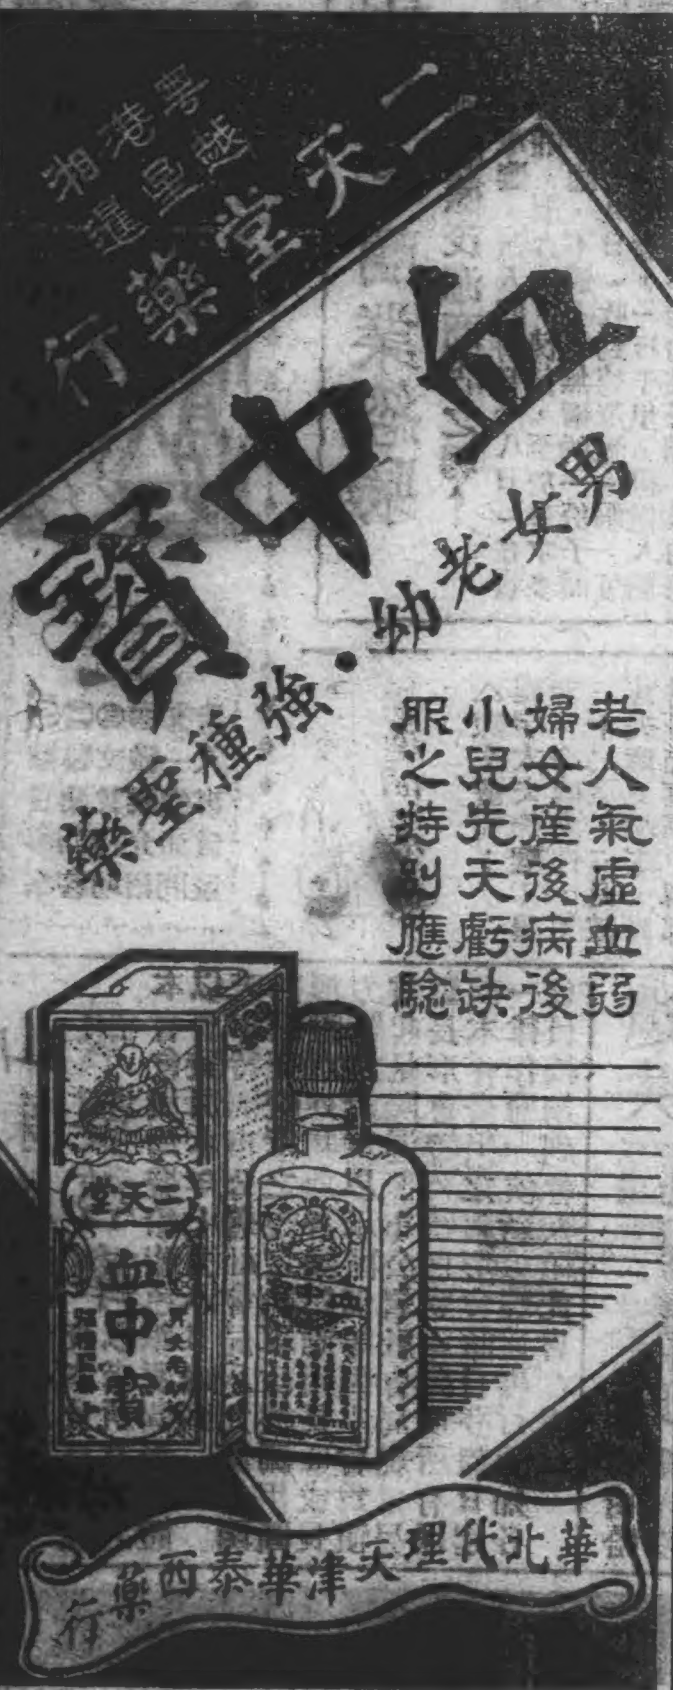 二天堂藥行
血中寶
男女老幼·強種聖藥
老人氣虛血弱
婦女產後病後
小兒先天虧缺
服之特別應驗
二天堂
血中寶
華北代理天津華泰西藥行